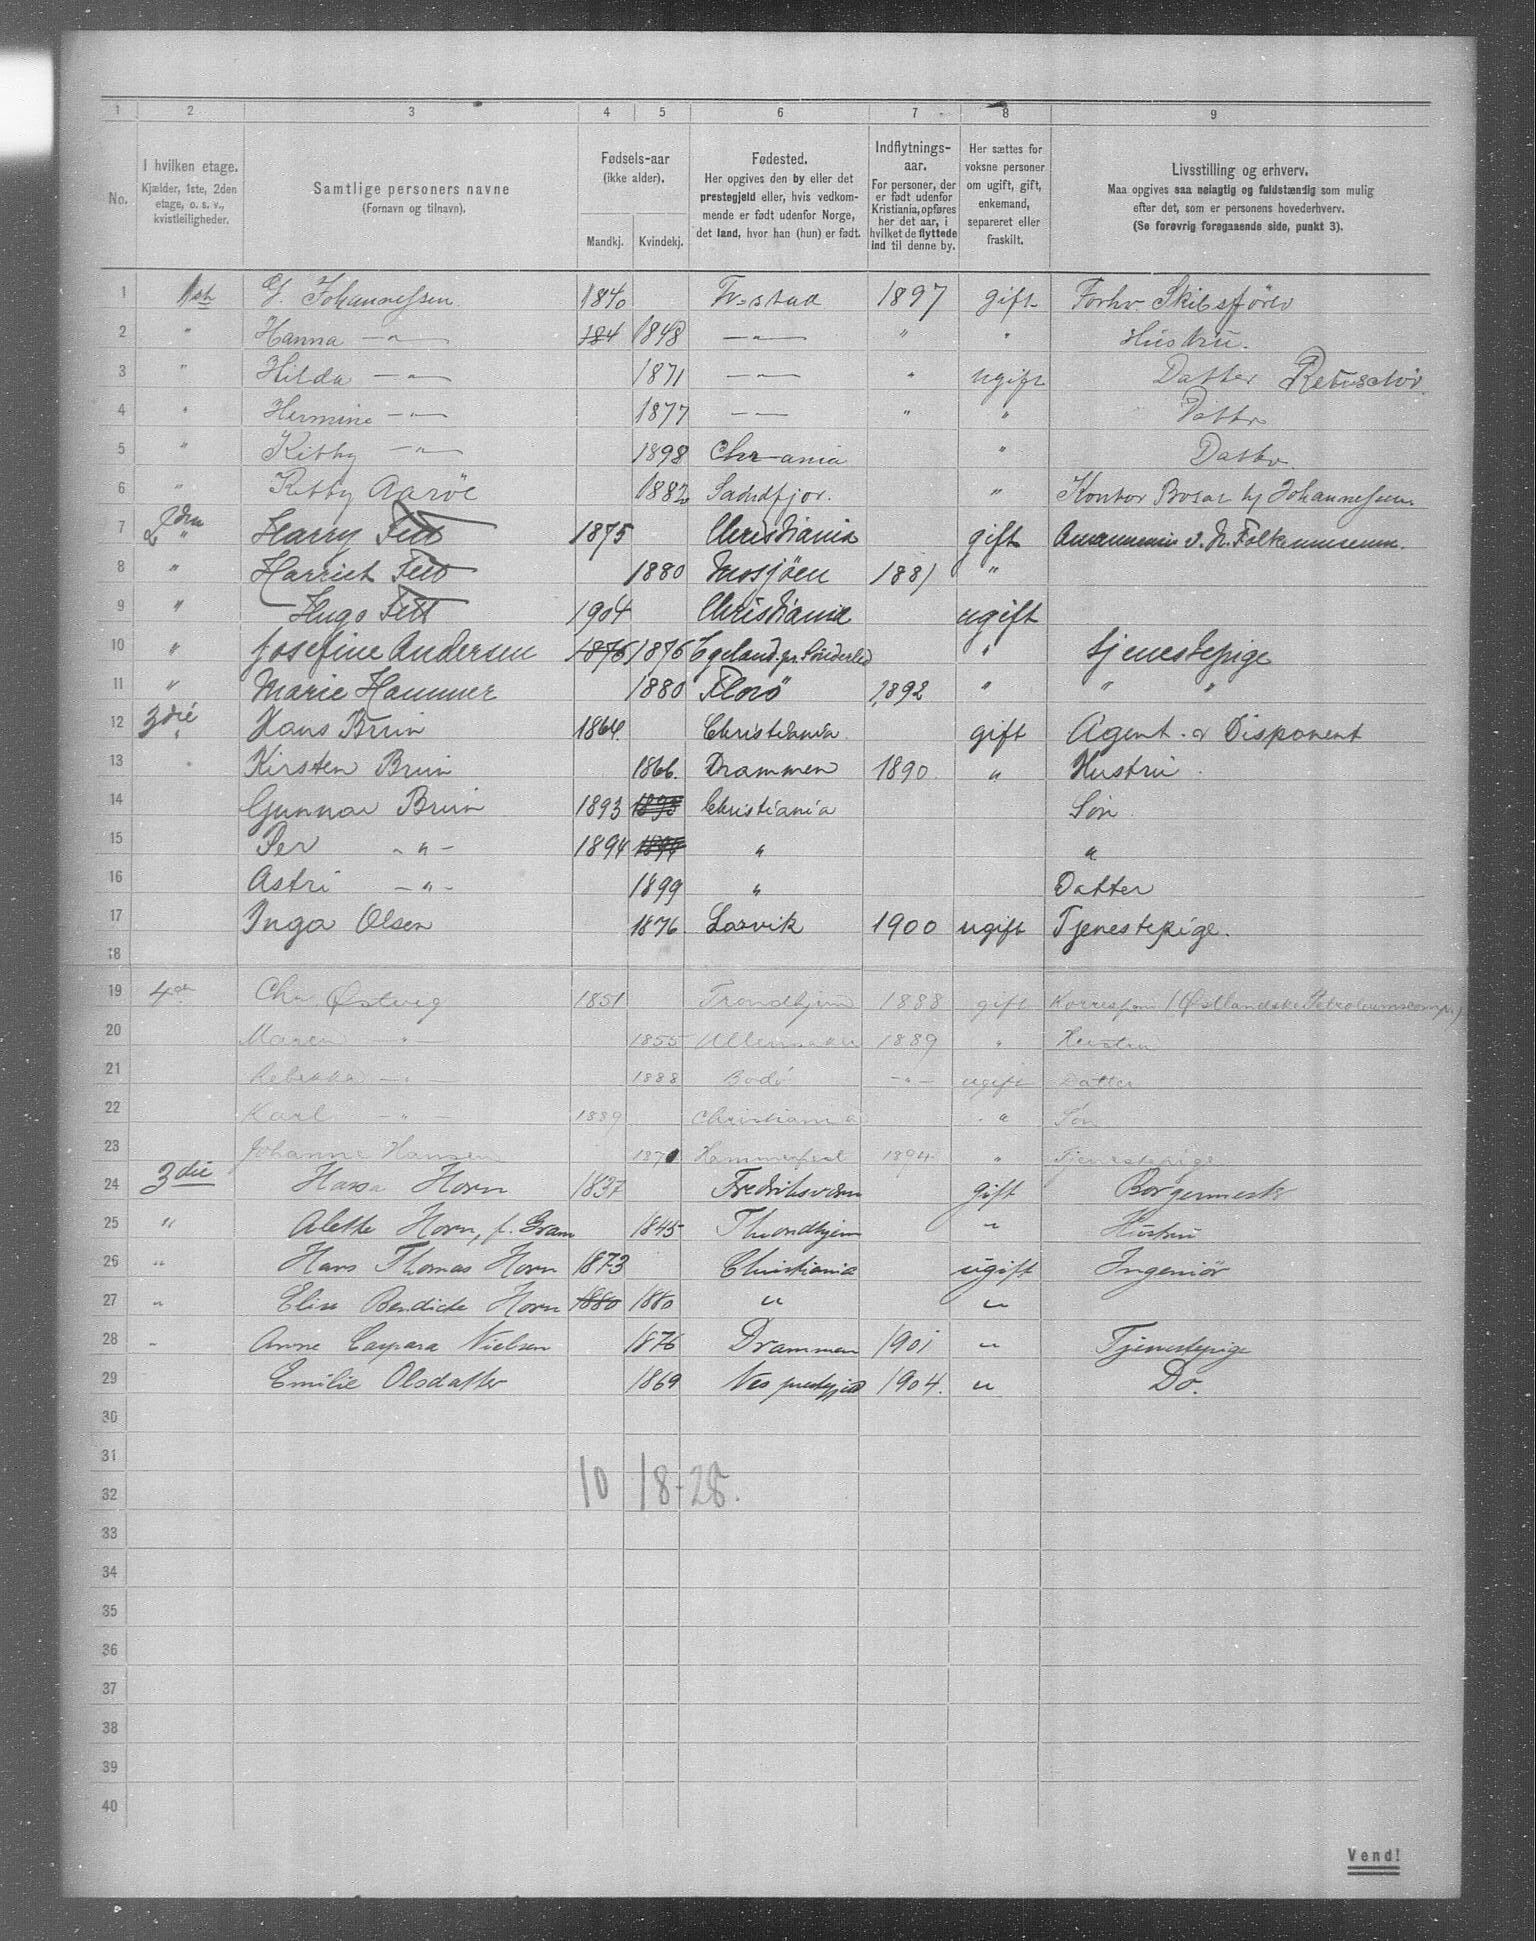 1 2 3 4 5 6 7 8 9
No. I hvilken etage. Kjælder, 1ste, 2den etage, o. s. v., kvistleiligheder. Samtlige personers navne (Fornavn og tilnavn). Fødsels-aar (ikke alder). Mandkj. Kvindekj. Fødested. Her opgives den by eller det prestegjeld eller, hvis vedkommende er født udenfor Norge, det land, hvor han (hun) er født. Indflytnings-aar. For personer, der er født udenfor Kristiania, opføres her det aar, i hvilket de flyttede ind til denne by. Her sættes for voksne personer om ugift, gift, enkemand, separeret eller fraskilt. Livsstilling og erhverv. Maa opgives saa nøiagtig og fuldstændig som mulig efter det, som er personens hovederhverv. (Se forøvrig foregaaende side, punkt 3).
1 1ste G. Johannessen 1840 Fr.stad 1897 gift Forhv. Skibsfører
2 " Hanna —"— 184 1848 —"— " " Hustru.
3 " Hilda —"— 1871 —"— " ugift Datter Retuschör
4 " Hermine —"— 1877 —"— " " Datter
5 " Kitty —"— 1898 Chr-ania " Datter
6 " Kitty Aaröe 1882 Sandefjor. " Kontor hj Johannessen.
7 2den " Harry Fett 1875 Christiania gift v. N. Folkemuseum.
8 " Harriet Fett 1880 Mosjöen 1881 "
9 " Hugo Fett 1904 Christiania ugift
10 " Josefine Andersen 1876 1876 Egeland pr Sönderled " tjenestepige
11 " Marie Hammer 1880 Florö 1892 " " "
12 3die " Hans Bruun 1864. Christiania gift Agent & Disponent
13 " Kirsten Bruun 1866. Drammen 1890. " Hustru.
14 Gunnar Bruun 1893 1893 Christiania Sön
15 Per —"— 1894 1894 " "
16 Astri —"— 1899 " Datter
17 Inga Olsen 1876 Larvik 1900 ugift Tjenestepige.
18
19 4de Chr Østvig 1851 Trondhjem 1888 gift Korrespon (Østlandske Petroleumscomp.)
20 Maren —"— 1855 Ullensaker 1889 " Hustru
21 Rebekka —"— 1888 Bodö —"— ugift Datter
22 Karl —"— 1889 Christiania " Sön
23 Johanne Hansen 1870 Hammerfest 1894 " Tjenestepige
24 3die Hans Horn 1837 Fredriksværn gift Borgermester
25 " Alette Horn, f. Gram 1845 Throndhjem " Hustru
26 " Hans Thomas Horn 1873 Christiania ugift Ingeniör
27 " Elise Bendicte Horn 1880 1880 " "
28 " Anne Caspara Nielsen 1876 Drammen 1901 " Tjenestepige
29 Emilie Olsdatter 1869 Nes prestegjeld 1904. " Do.
30
31
32 10 18-28.
33
34
35
36
37
38
39
40
Vend!